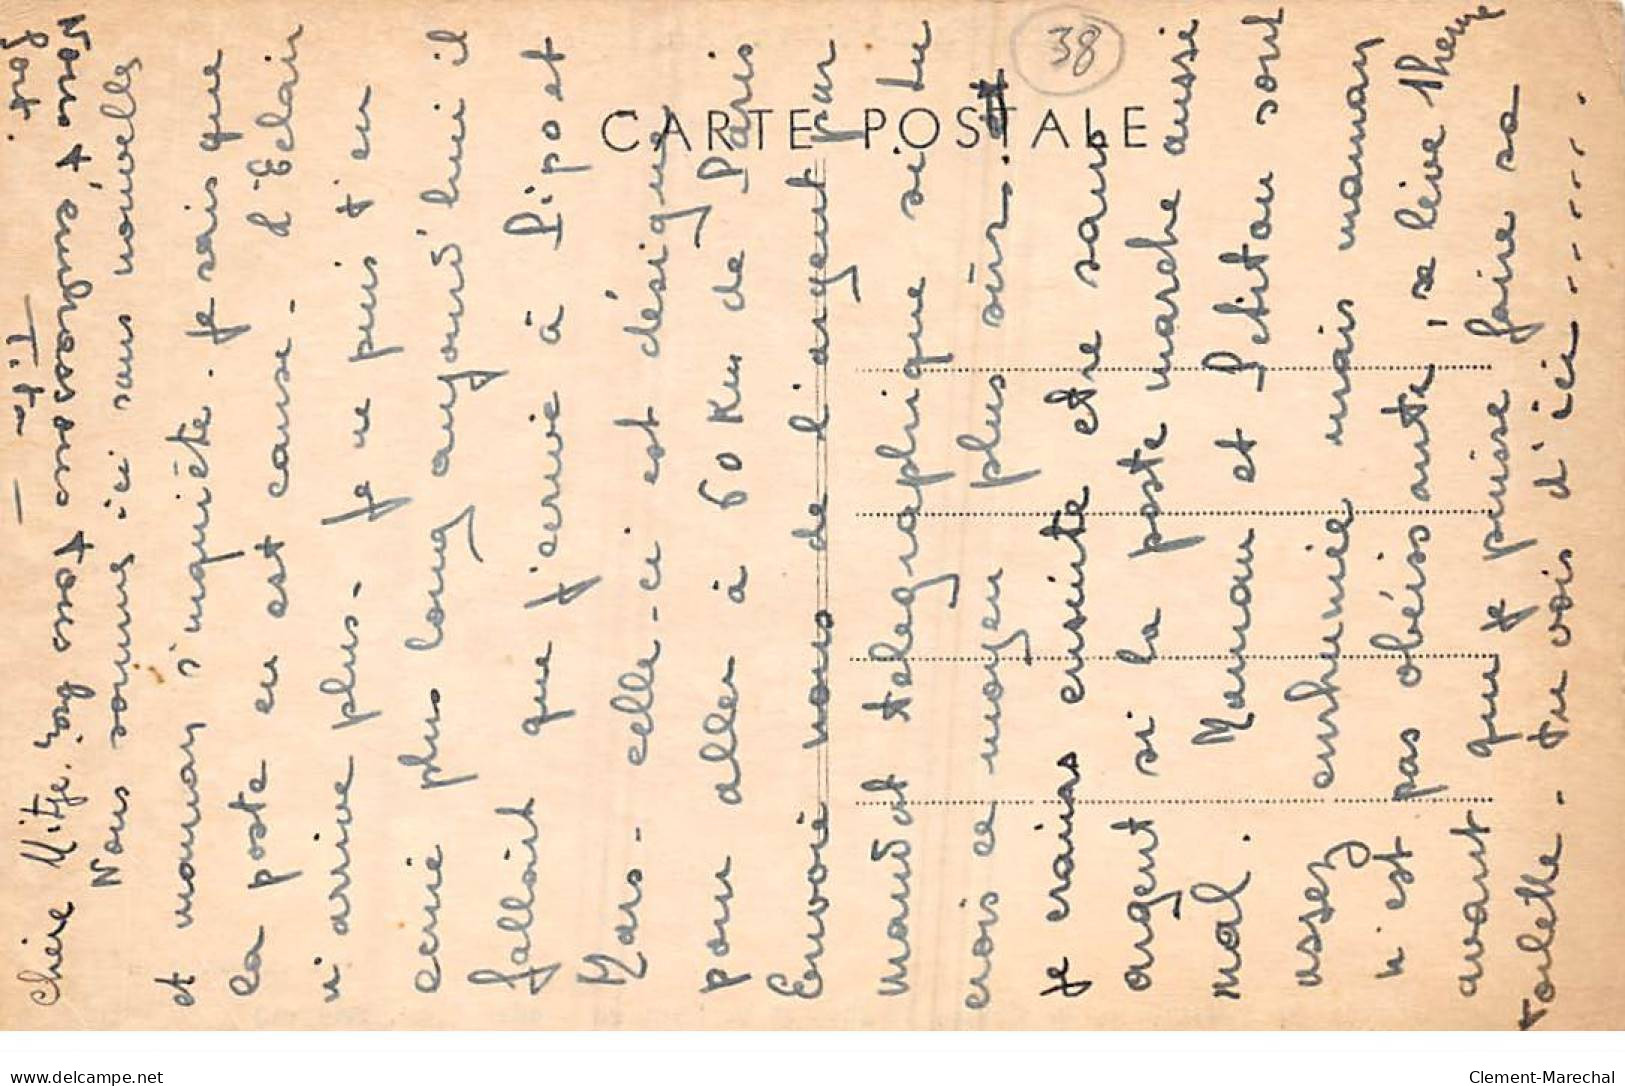 Chère Mitje. 
Nous sommes ici sans nouvelles
et maman s'inquiète. je sais que
la poste en est cause. l'Eclair
n'arrive plus. Je ne puis t'en
écrire plus long aujourd'hui il
fallait que j'écrive à Pipo et
Mars. celle-ci est désignée
pour aller à 60 Km de Paris
Envoie nous de l'argent par
mandat télégraphique si tu
crois ce moyen plus sûr.
je crains ensuite être sans
argent si la poste marche aussi
mal. Maman et Petitou sont
assez enrhumée mais maman
n'est pas obéissante, se lève
avant que je puisse faire sa
toilette. tu vois d'ici.......
Nous t'embrassons tous
fort.
CARTE POSTALE
38
delcampe.net
Clement-Marechal